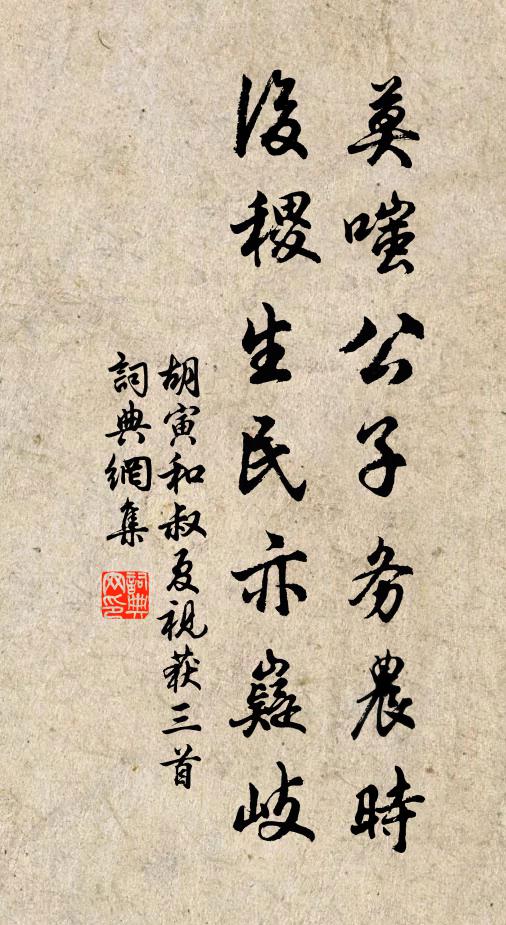 莫嗤公子务農時
後稷生民亦嶷岐
胡寅和叔夏視获三首
詞典網集
詞典网印